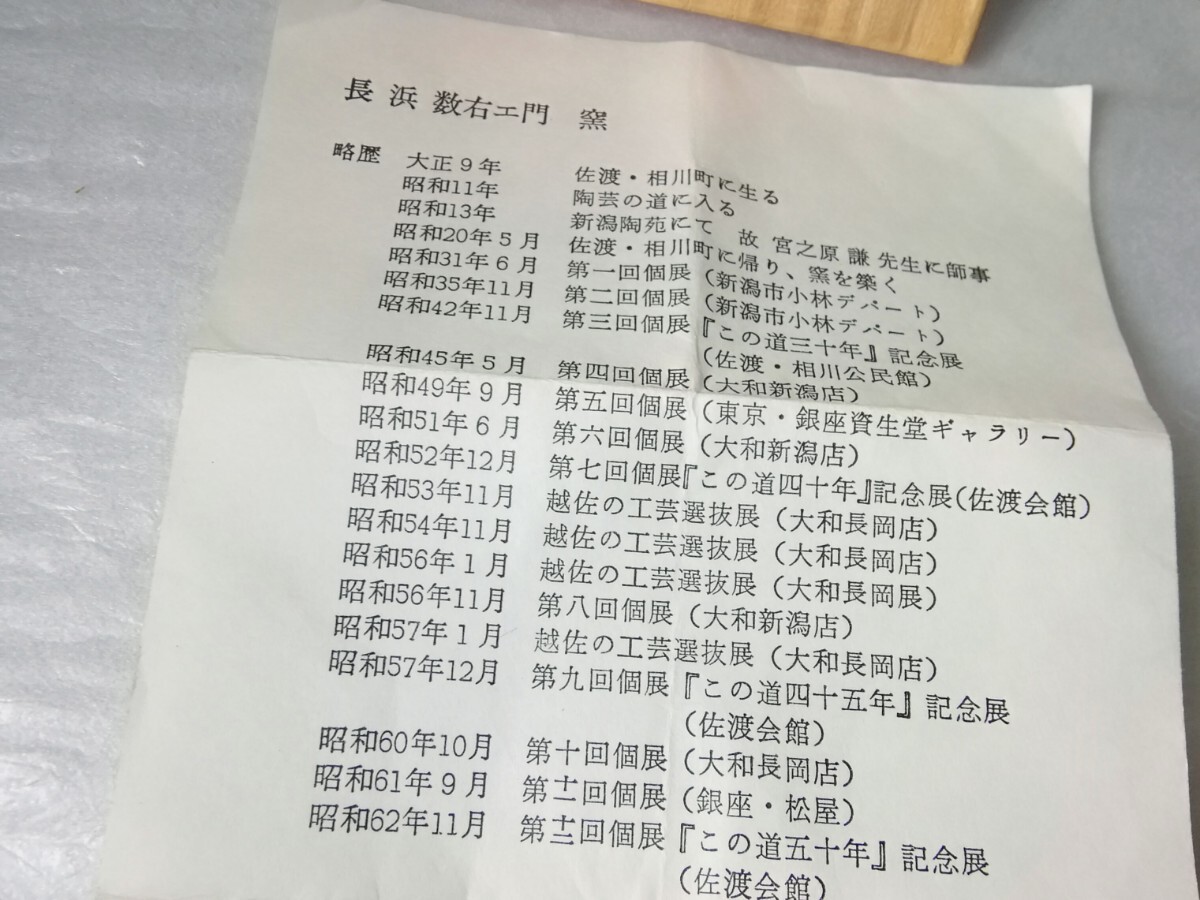 長浜 数右エ門 窯
略歴 大正9年 佐渡・相川町に生る
昭和11年 陶芸の道に入る
昭和13年 新潟陶苑にて 故 宮之原 謙 先生に師事
昭和20年5月 佐渡・相川町に帰り、窯を築く
昭和31年6月 第一回個展(新潟市小林デパート)
昭和35年11月 第二回個展(新潟市小林デパート)
昭和42年11月 第三回個展『この道三十年』記念展
(佐渡・相川公民館)
昭和45年5月 第四回個展(大和新潟店)
昭和49年9月 第五回個展(東京・銀座資生堂ギャラリー)
昭和51年6月 第六回個展(大和新潟店)
昭和52年12月 第七回個展『この道四十年』記念展(佐渡会館)
昭和53年11月 越佐の工芸選抜展(大和長岡店)
昭和54年11月 越佐の工芸選抜展(大和長岡店)
昭和56年1月 越佐の工芸選抜展(大和長岡展)
昭和56年11月 第八回個展(大和新潟店)
昭和57年1月 越佐の工芸選抜展(大和長岡店)
昭和57年12月 第九回個展『この道四十五年』記念展
(佐渡会館)
昭和60年10月 第十回個展(大和長岡店)
昭和61年9月 第十一回個展(銀座・松屋)
昭和62年11月 第十二回個展『この道五十年』記念展
(佐渡会館)